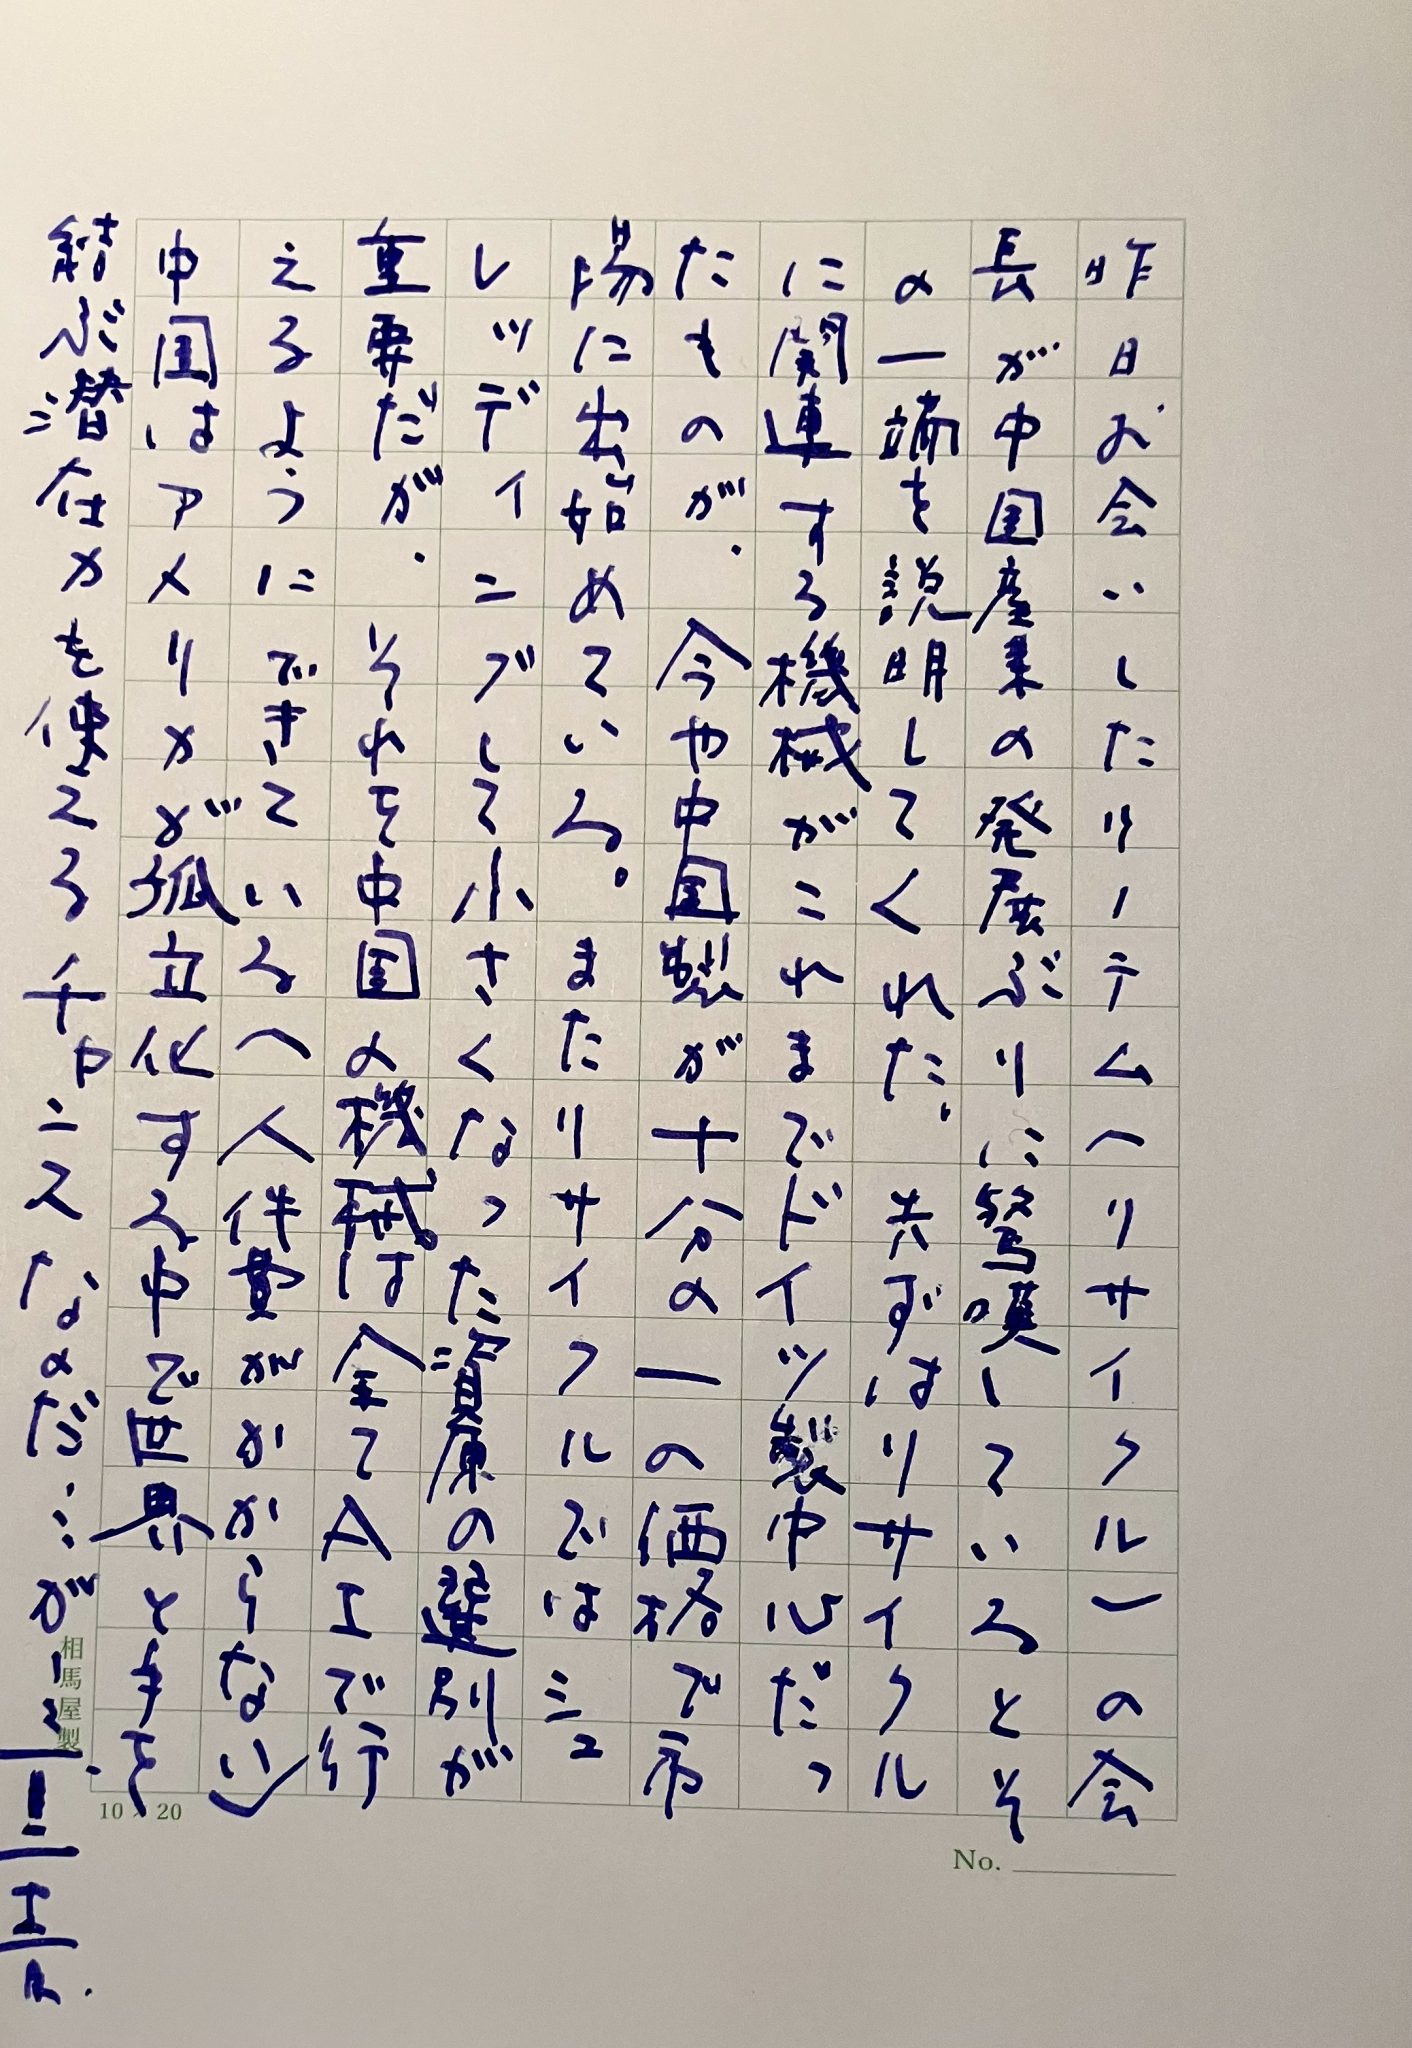 昨日お会いしたリーテム(リサイクル)の会
長が中国産業の発展ぶりに驚嘆しているとそ
の一端を説明してくれた。共ずはリサイクル
に関連する機械がこれまでドイツ製中心だっ
たものが、今や中国製が十分の一の価格で市
場に出始めている。またリサイクルではシュ
レッディングして小さくなった資源の選別が
重要だが、それを中国の機械は全てAIで行
えるようにできている(人件費がかからない)
中国はアメリカが孤立化する中で世界と手を
結ぶ潜在力を使えるチャンスなのだ…が
相馬屋製
10×20
No.